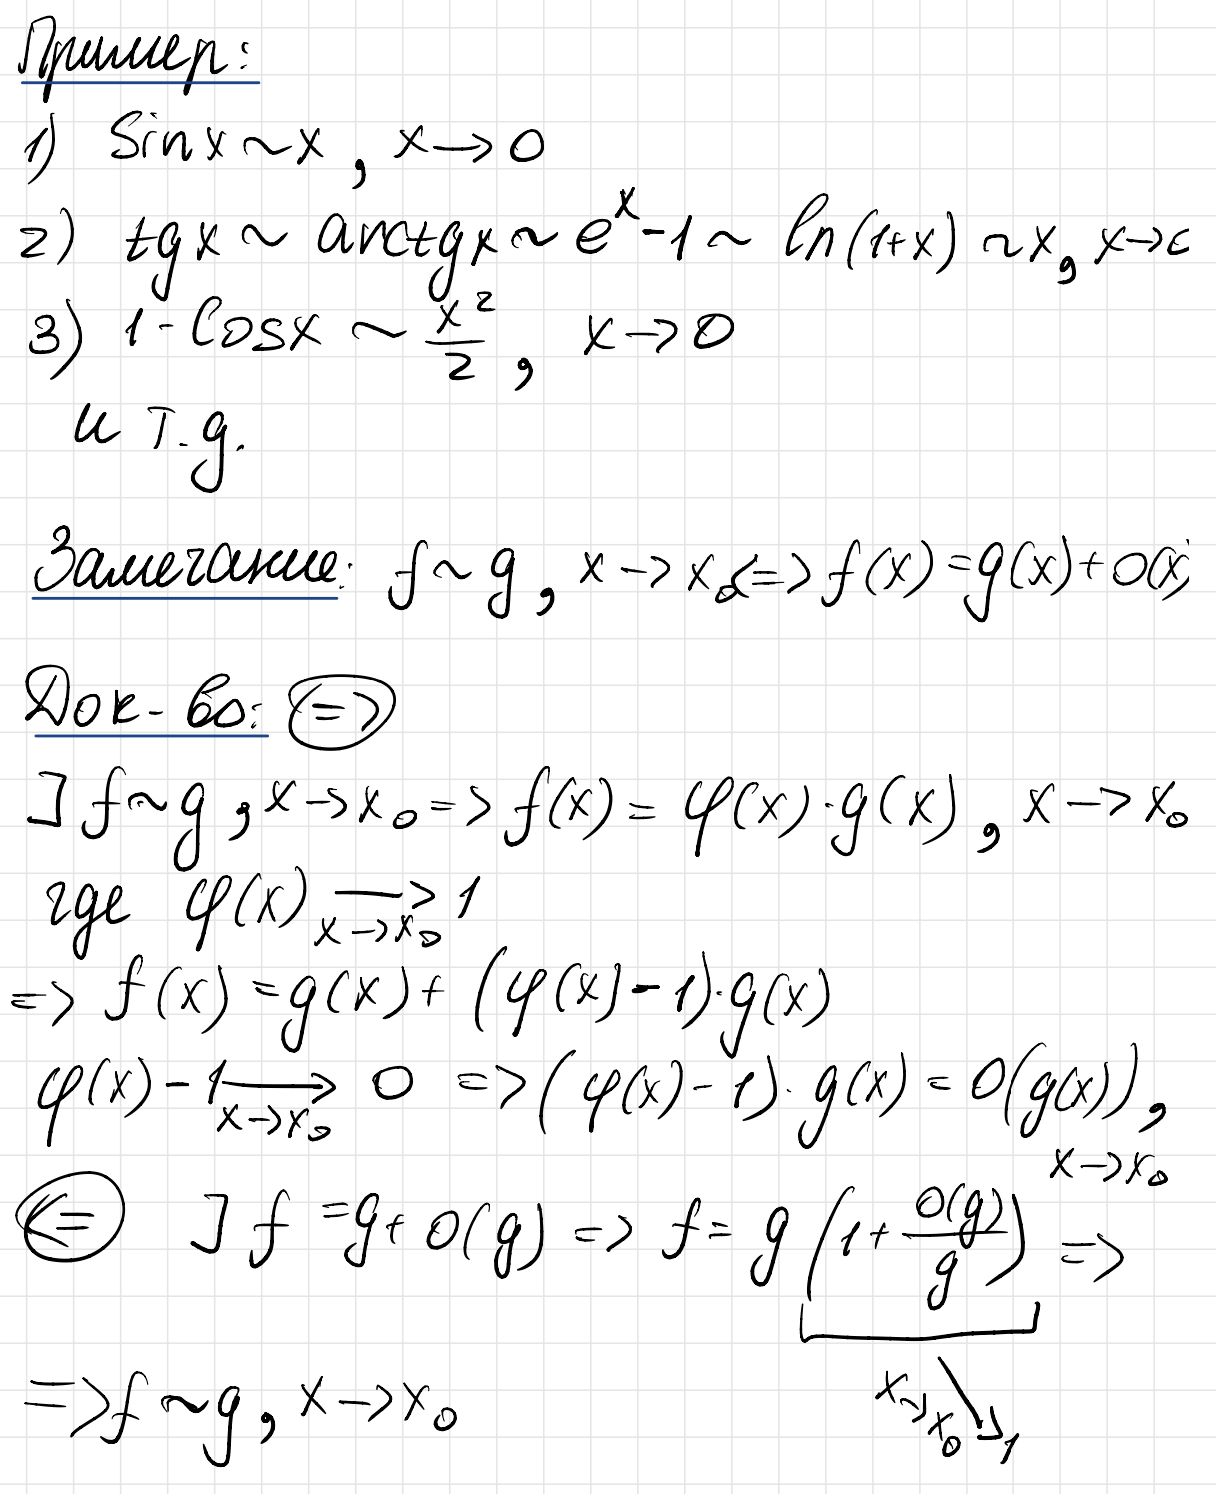 Пример:
1) Sin x ~ x, x -> 0
2) tg x ~ arctg x ~ e^x - 1 ~ ln(1+x) ~ x, x -> 0
3) 1 - Cos x ~ x²/2, x -> 0
и т.д.
Замечание: f ~ g, x -> x₀ <=> f(x) = g(x) + o(x)
Док-во: (=>)
] f ~ g, x -> x₀ => f(x) = φ(x)·g(x), x -> x₀
где φ(x) -> 1 x -> x₀
=> f(x) = g(x) + (φ(x) - 1)·g(x)
φ(x) - 1 -> 0 x -> x₀ => (φ(x) - 1)·g(x) = o(g(x)), x -> x₀
(<=) ] f = g + o(g) => f = g (1 + o(g)/g) =>
x -> x₀ -> 1
=> f ~ g, x -> x₀